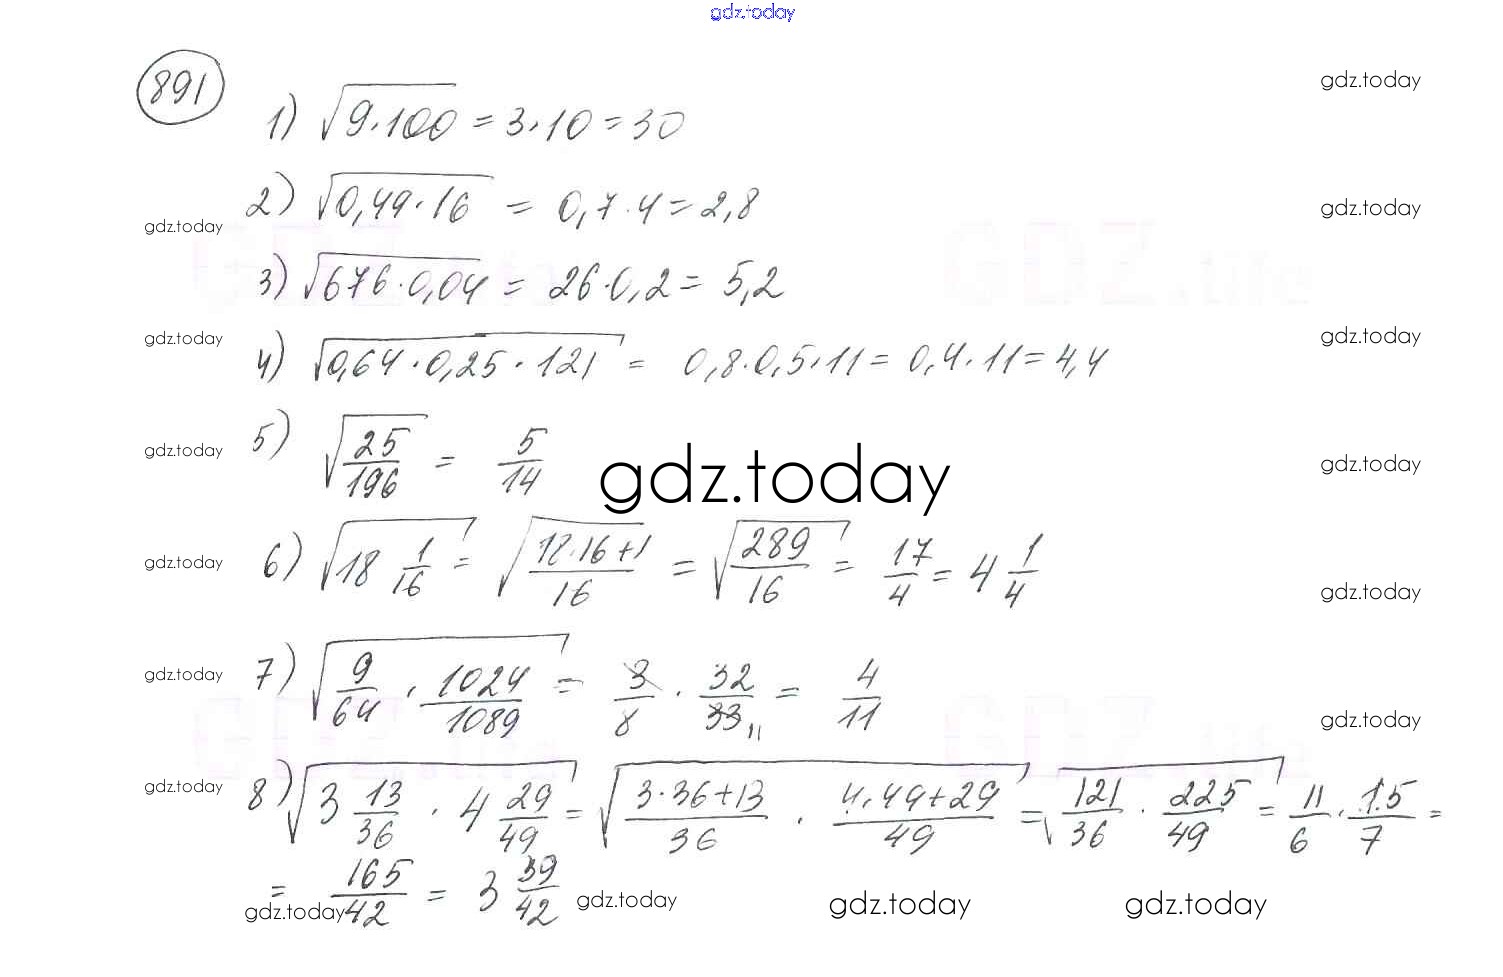 gdz.today
891
gdz.today
1) √(9·100) = 3·10 = 30
2) √(0,49·16) = 0,7·4 = 2,8
gdz.today
gdz.today
GDZ.life
GDZ.life
3) √(676·0,04) = 26·0,2 = 5,2
gdz.today
gdz.today
4) √(0,64·0,25·121) = 0,8·0,5·11 = 0,4·11 = 4,4
5) √(25/196) = 5/14
gdz.today
gdz.today
gdz.today
6) √(18 1/16) = √((18·16+1)/16) = √(289/16) = 17/4 = 4 1/4
gdz.today
gdz.today
7) √(9/64 · 1024/1089) = 3/8 · 32/33 11 = 4/11
gdz.today
gdz.today
GDZ.life
GDZ.life
8) √(3 13/36 · 4 29/49) = √((3·36+13)/36 · (4·49+29)/49) = √(121/36 · 225/49) = 11/6 · 15/7 =
gdz.today
= 165/42 = 3 39/42
gdz.today
gdz.today
gdz.today
gdz.today